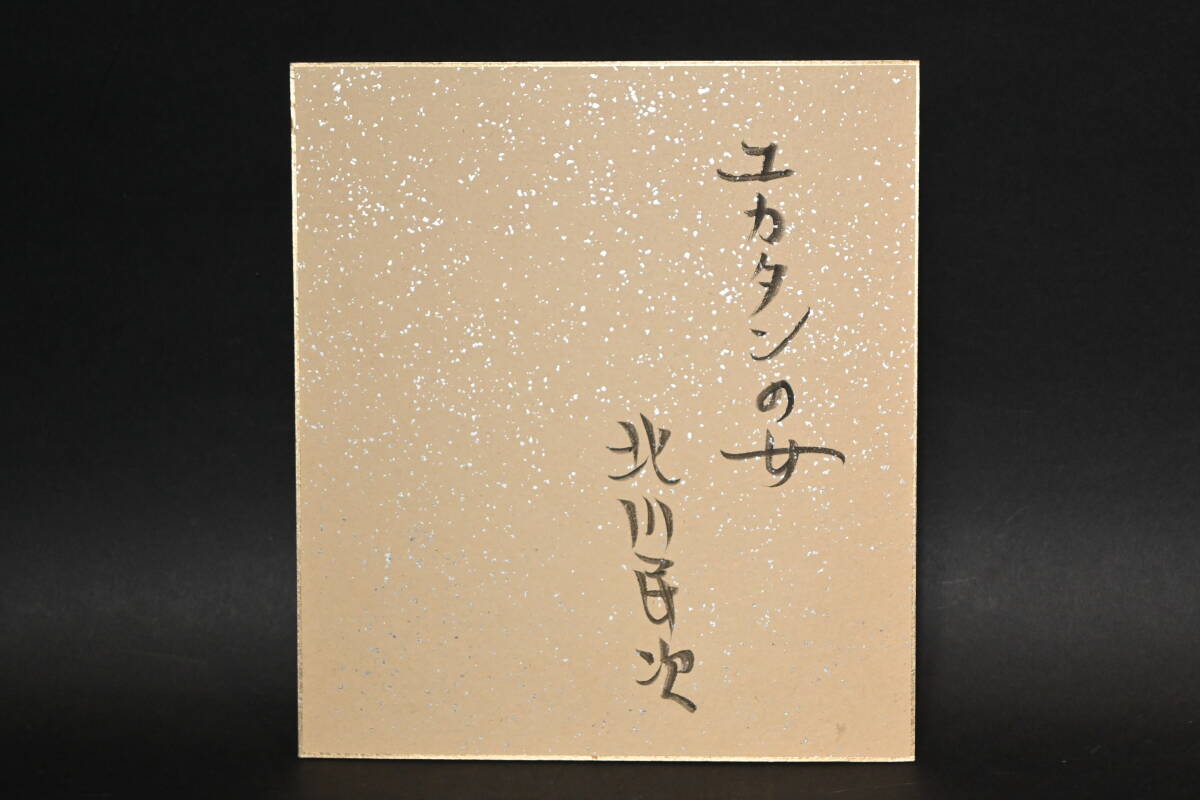 ユカタンの女
北川民次